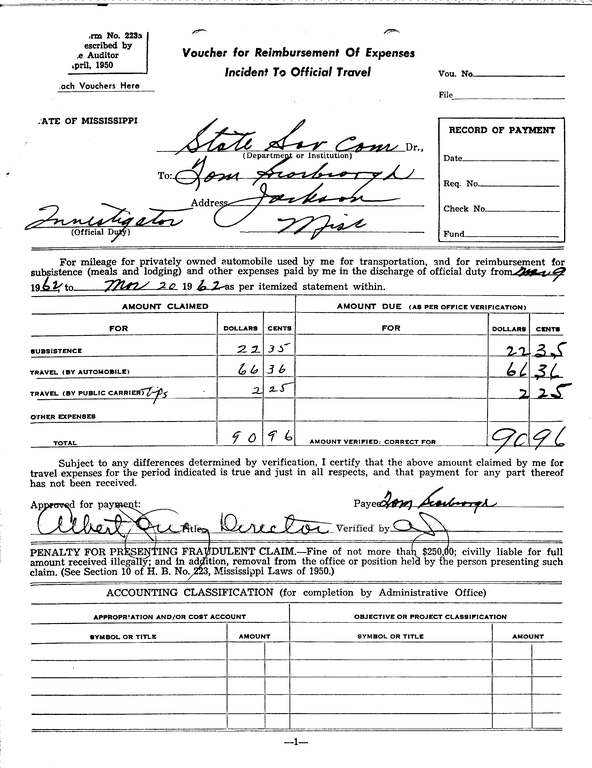 rm No. 223a
escribed by
e Auditor
pril, 1950
ach Vouchers Here
Voucher for Reimbursement Of Expenses
Incident To Official Travel
Vou. No.
File
ATE OF MISSISSIPPI
State Sov Com Dr.,
(Department or Institution)
To: Tom Scarbrough
Address Jackson
Miss
Investigator
(Official Duty)
RECORD OF PAYMENT
Date
Req. No.
Check No.
Fund
For mileage for privately owned automobile used by me for transportation, and for reimbursement for
subsistence (meals and lodging) and other expenses paid by me in the discharge of official duty from
1962, to Mar 20 1962 as per itemized statement within.
AMOUNT CLAIMED AMOUNT DUE (AS PER OFFICE VERIFICATION)
FOR DOLLARS CENTS FOR DOLLARS CENTS
SUBSISTENCE 22 35 22 35
TRAVEL (BY AUTOMOBILE) 66 36 66 36
TRAVEL (BY PUBLIC CARRIER) tips 2 25 2 25
OTHER EXPENSES
TOTAL 90 96 AMOUNT VERIFIED: CORRECT FOR 90 96
Subject to any differences determined by verification, I certify that the above amount claimed by me for
travel expenses for the period indicated is true and just in all respects, and that payment for any part thereof
has not been received.
Approved for payment: Payee Tom Scarbrough
Albert Title Director Verified by
PENALTY FOR PRESENTING FRAUDULENT CLAIM.—Fine of not more than $250.00; civilly liable for full
amount received illegally; and in addition, removal from the office or position held by the person presenting such
claim. (See Section 10 of H. B. No. 223, Mississippi Laws of 1950.)
ACCOUNTING CLASSIFICATION (for completion by Administrative Office)
APPROPRIATION AND/OR COST ACCOUNT OBJECTIVE OR PROJECT CLASSIFICATION
SYMBOL OR TITLE AMOUNT SYMBOL OR TITLE AMOUNT
—1—